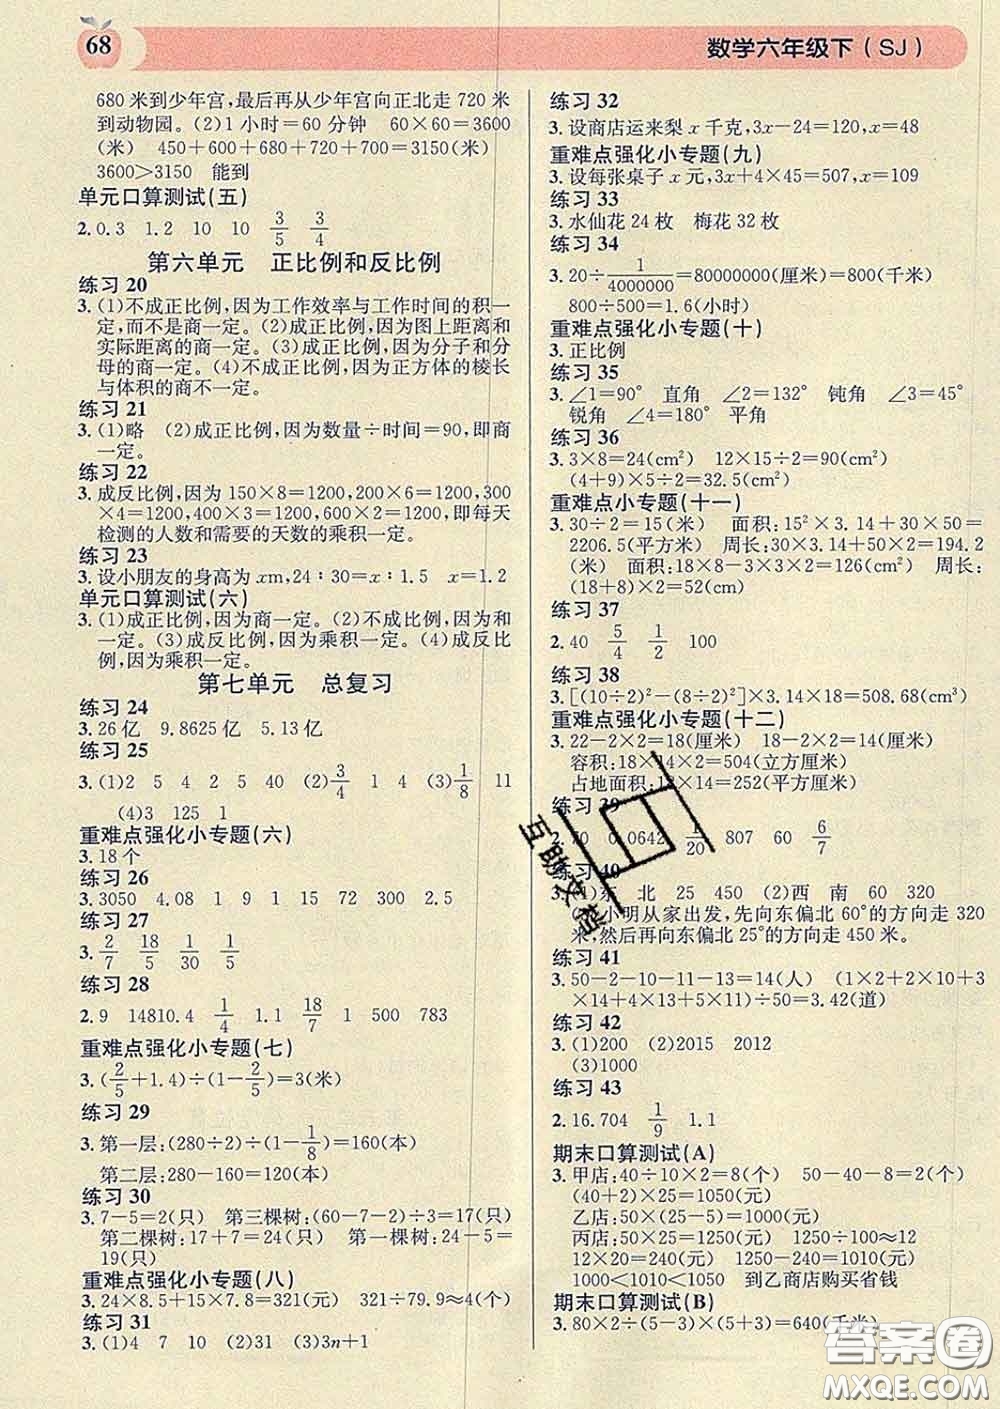 68
数学六年级下(SJ)
680米到少年宫,最后再从少年宫向正北走720米
到动物园。(2)1小时=60分钟 60×60=3600
(米) 450+600+680+720+700=3150(米)
3600>3150 能到
单元口算测试(五)
2. 0.3 1.2 10 10 3/5 3/4
第六单元 正比例和反比例
练习20
3.(1)不成正比例,因为工作效率与工作时间的积一
定,而不是商一定。(2)成正比例,因为图上距离和
实际距离的商一定。(3)成正比例,因为分子和分
母的商一定。(4)不成正比例,因为正方体的棱长
与体积的商不一定。
练习21
3.(1)略 (2)成正比例,因为数量÷时间=90,即商
一定。
练习22
3.成反比例,因为150×8=1200,200×6=1200,300
×4=1200,400×3=1200,600×2=1200,即每天
检测的人数和需要的天数的乘积一定。
练习23
3.设小朋友的身高为xm,24∶30=x∶1.5 x=1.2
单元口算测试(六)
3.(1)成正比例,因为商一定。(2)不成比例,因为和
一定。(3)成反比例,因为乘积一定。(4)成反比
例,因为乘积一定。
第七单元 总复习
练习24
3.26亿 9.8625亿 5.13亿
练习25
3.(1)2 5 4 2 5 40 (2)3/4 1 4 (3)1/8 11
(4)3 125 1
重难点强化小专题(六)
3.18个
练习26
3.3050 4.08 1 9 1 15 72 300 2.5
练习27
3. 2/7 18/5 1/30 1/5
练习28
2.9 14810.4 1/4 1.1 18/7 1 500 783
重难点强化小专题(七)
3.(2/5+1.4)÷(1-2/5)=3(米)
练习29
3.第一层:(280÷2)÷(1-1/8)=160(本)
第二层:280-160=120(本)
练习30
3.7-5=2(只) 第三棵树:(60-7-2)÷3=17(只)
第二棵树:17+7=24(只) 第一棵树:24-5=
19(只)
重难点强化小专题(八)
3.24×8.5+15×7.8=321(元) 321÷79.9≈4(元)
练习31
3.(1)4 7 10 (2)31 (3)3n+1
练习32
3.设商店运来梨x千克,3x-24=120,x=48
重难点强化小专题(九)
3.设每张桌子x元,3x+4×45=507,x=109
练习33
3.水仙花24枚 梅花32枚
练习34
3.20÷1/4000000=80000000(厘米)=800(千米)
800÷500=1.6(小时)
重难点强化小专题(十)
3.正比例
练习35
3.∠1=90° 直角 ∠2=132° 钝角 ∠3=45°
锐角 ∠4=180° 平角
练习36
3.3×8=24(cm²) 12×15÷2=90(cm²)
(4+9)×5÷2=32.5(cm²)
重难点小专题(十一)
3.30÷2=15(米) 面积:15²×3.14+30×50=
2206.5(平方米) 周长:30×3.14+50×2=194.2
(米) 面积:18×8-3×3×2=126(m²) 周长:
(18+8)×2=52(m)
练习37
2.40 5/4 1/2 100
练习38
3.[(10÷2)²-(8÷2)²]×3.14×18=508.68(cm³)
重难点强化小专题(十二)
3.22-2×2=18(厘米) 18-2×2=14(厘米)
容积:18×14×2=504(立方厘米)
占地面积:18×14=252(平方厘米)
练习39
0.0642 1/20 807 60 6/7
练习40
3.(1)东 北 25 450 (2)西 南 60 320
小明从家出发,先向东偏北60°的方向走320
米,然后再向东偏北25°的方向走450米。
练习41
3.50-2-10-11-13=14(人) (1×2+2×10+3
×14+4×13+5×11)÷50=3.42(道)
练习42
3.(1)200 (2)2015 2012
(3)1000
练习43
2.16.704 1/9 1.1
期末口算测试(A)
3.甲店:40÷10×2=8(个) 50-40-8=2(个)
(40+2)×25=1050(元)
乙店:50×(25-5)=1000(元)
丙店:50×25=1250(元) 1250÷100≈12
12×20=240(元) 1250-240=1010(元)
1000<1010<1050 到乙商店购买省钱
期末口算测试(B)
3.80×2÷(5-3)×(5+3)=640(千米)
互助文档
答案圈
MXQE.COM